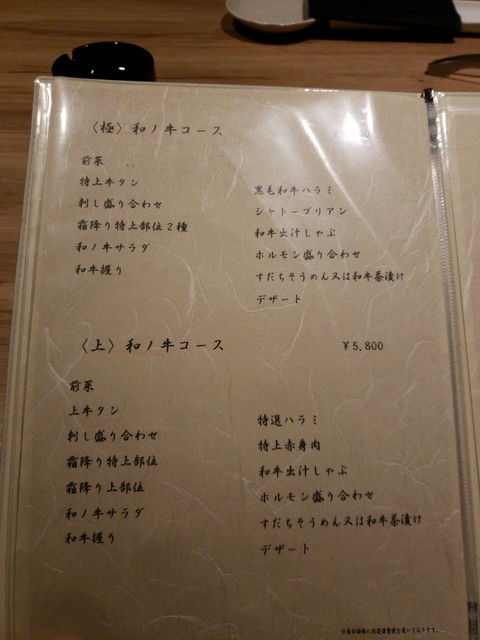 〈極〉和ノ牛コース
前菜
特上牛タン
刺し盛り合わせ
霜降り特上部位２種
和ノ牛サラダ
和牛握り
黒毛和牛ハラミ
シャトーブリアン
和牛出汁しゃぶ
ホルモン盛り合わせ
すだちそうめん又は和牛茶漬け
デザート
〈上〉和ノ牛コース ￥5,800
前菜
上牛タン
刺し盛り合わせ
霜降り特上部位
霜降り上部位
和ノ牛サラダ
和牛握り
特選ハラミ
特上赤身肉
和牛出汁しゃぶ
ホルモン盛り合わせ
すだちそうめん又は和牛茶漬け
デザート